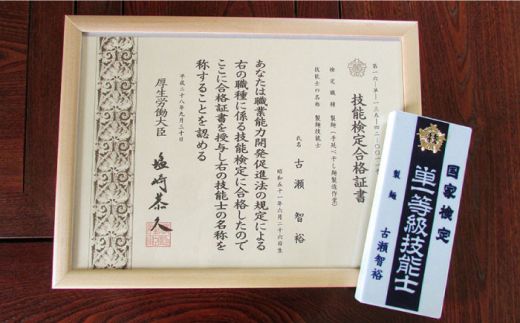 技能検定合格証書
検定職種 製麺（手延べ干し麺製造作業）
技能士の名称 製麺技能士
氏名 古瀬智裕
昭和五十一年六月二十六日生
あなたは職業能力開発促進法の規定による
右の職種に係る技能検定に合格したので
ここに合格証書を授与し右の技能士の名称を
称することを認める
平成二十八年九月三十日
厚生労働大臣 塩崎恭久
国家検定
単一等級技能士
製麺 古瀬智裕